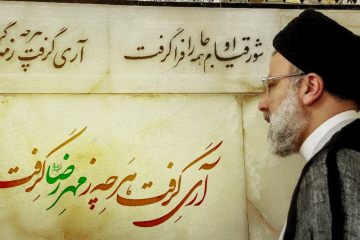 شور قیام او همه جا را فرا گرفت
آری گرفت هر چه ز
آری گرفت هر چه ز مهر رضا گرفت